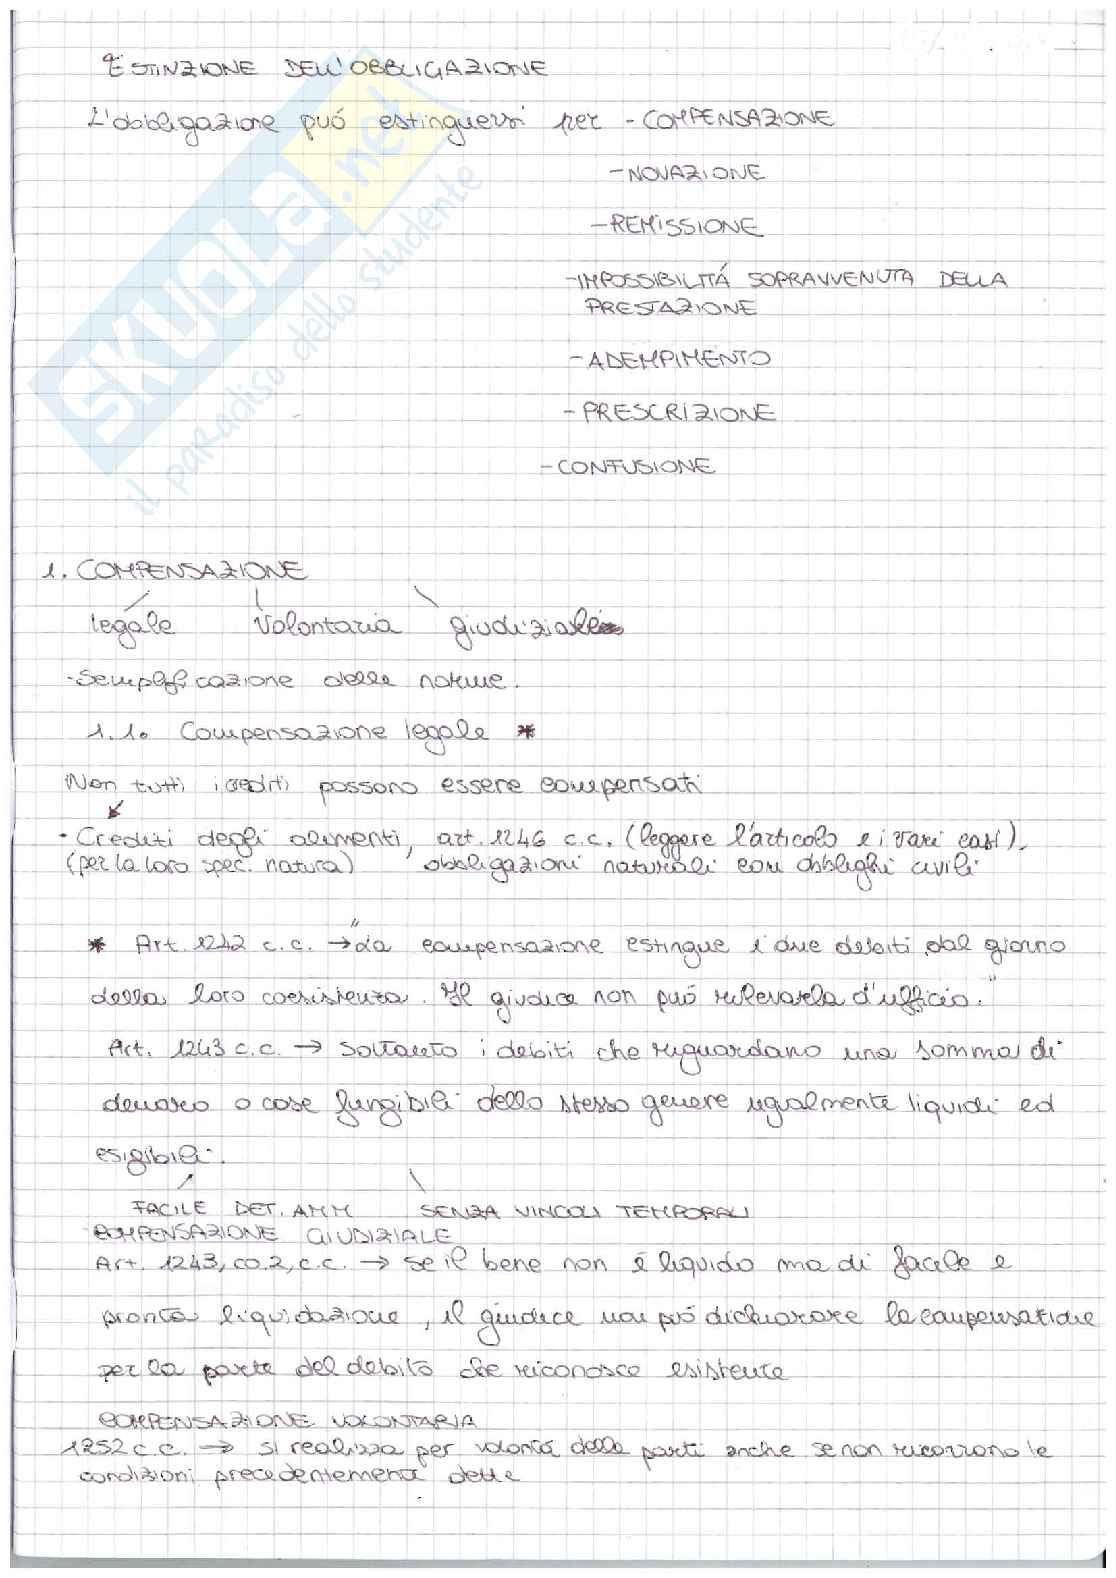 ESTINZIONE DELL'OBBLIGAZIONE
L'obbligazione puó estinguersi per - COMPENSAZIONE
- NOVAZIONE
- REMISSIONE
- IMPOSSIBILITÁ SOPRAVVENUTA DELLA
PRESTAZIONE
- ADEMPIMENTO
- PRESCRIZIONE
- CONFUSIONE
SKUOLA.net
il paradiso dello studente
1. COMPENSAZIONE
legale volontaria giudiziale
- Semplificazione delle norme.
1.1. Compensazione legale *
Non tutti i crediti possono essere compensati
• Crediti degli alimenti, art. 1246 c.c. (leggere l'articolo e i vari casi).
(per la loro spec. natura) obbligazioni naturali con obblighi civili
* Art. 1242 c.c. → "La compensazione estingue i due debiti dal giorno
della loro coesistenza. Il giudice non puó rilevarla d'ufficio."
Art. 1243 c.c. → Soltanto i debiti che riguardano una somma di
denaro o cose fungibili dello stesso genere ugualmente liquidi ed
esigibili.
FACILE DET. AMM SENZA VINCOLI TEMPORALI
COMPENSAZIONE GIUDIZIALE
Art. 1243, co.2, c.c. → se il bene non é liquido ma di facile e
pronta liquidazione, il giudice non puó dichiarare la compensazione
per la parte del debito che riconosce esistente
COMPENSAZIONE VOLONTARIA
1252 c.c. → si realizza per volontá delle parti anche se non ricorrono le
condizioni precedentemente dette